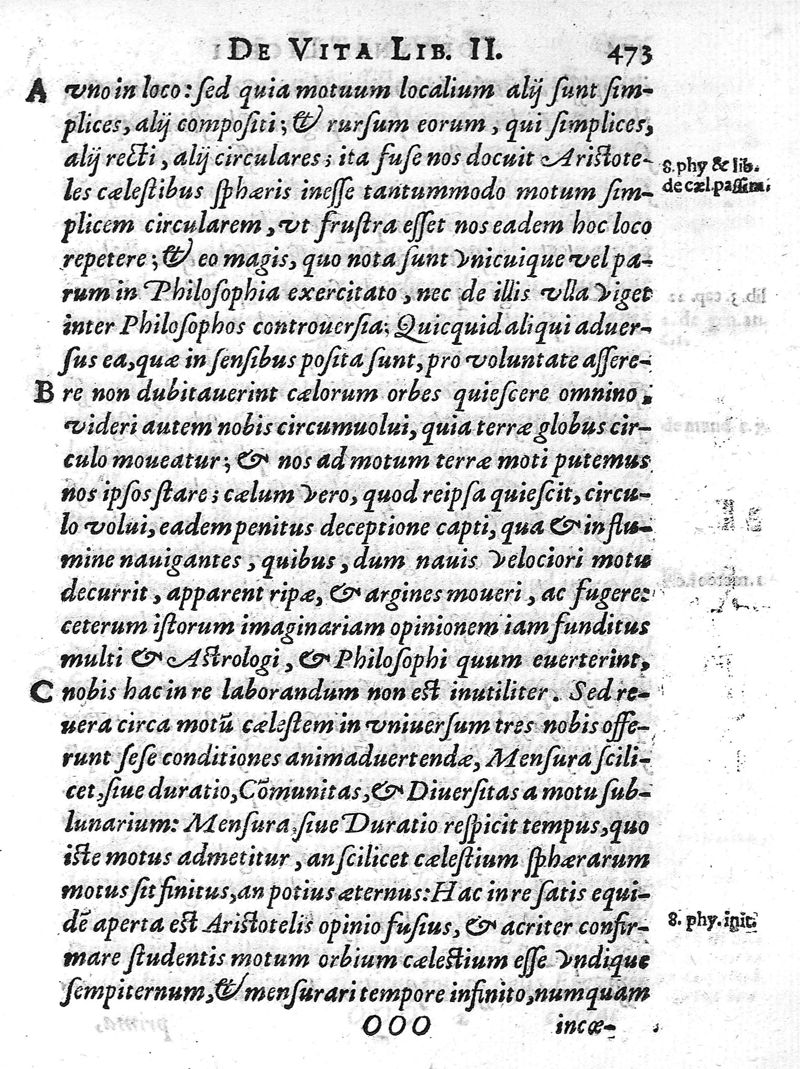 DE VITA LIB. II. 473
A vno in loco: sed quia motuum localium alij sunt sim-
plices, alij compositi; & rursum eorum, qui simplices,
alij recti, alij circulares; ita fuse nos docuit Aristote-
8. phy & lib.
les cælestibus sphæris inesse tantummodo motum sim-
de cæl. passim.
plicem circularem, vt frustra esset nos eadem hoc loco
repetere; & eo magis, quo nota sunt vnicuique vel pa-
rum in Philosophia exercitato, nec de illis vlla viget
inter Philosophos controuersia; Quicquid aliqui aduer-
sus ea, quæ in sensibus posita sunt, pro voluntate assere-
B re non dubitauerint cælorum orbes quiescere omnino;
videri autem nobis circumuolui, quia terræ globus cir-
culo moueatur; & nos ad motum terræ moti putemus
nos ipsos stare; cælum vero, quod reipsa quiescit, circu-
lo volui, eadem penitus deceptione capti, qua & in flu-
mine nauigantes, quibus, dum nauis velociori motu
decurrit, apparent ripæ, & argines moueri, ac fugere:
ceterum istorum imaginariam opinionem iam funditus
multi & Astrologi, & Philosophi quum euerterint,
C nobis hac in re laborandum non est inutiliter. Sed re-
uera circa motũ cælestem in vniuersum tres nobis offe-
runt sese conditiones animaduertendæ, Mensura scili-
cet, siue duratio, Cõmunitas, & Diuersitas a motu sub-
lunarium: Mensura, siue Duratio respicit tempus, quo
iste motus admetitur, an scilicet cælestium sphærarum
motus sit finitus, an potius æternus: Hac in re satis equi-
dẽ aperta est Aristotelis opinio fusius, & acriter confir-
8. phy. init.
mare studentis motum orbium cælestium esse vndique
sempiternum, & mensurari tempore infinito, numquam
OOO incœ-